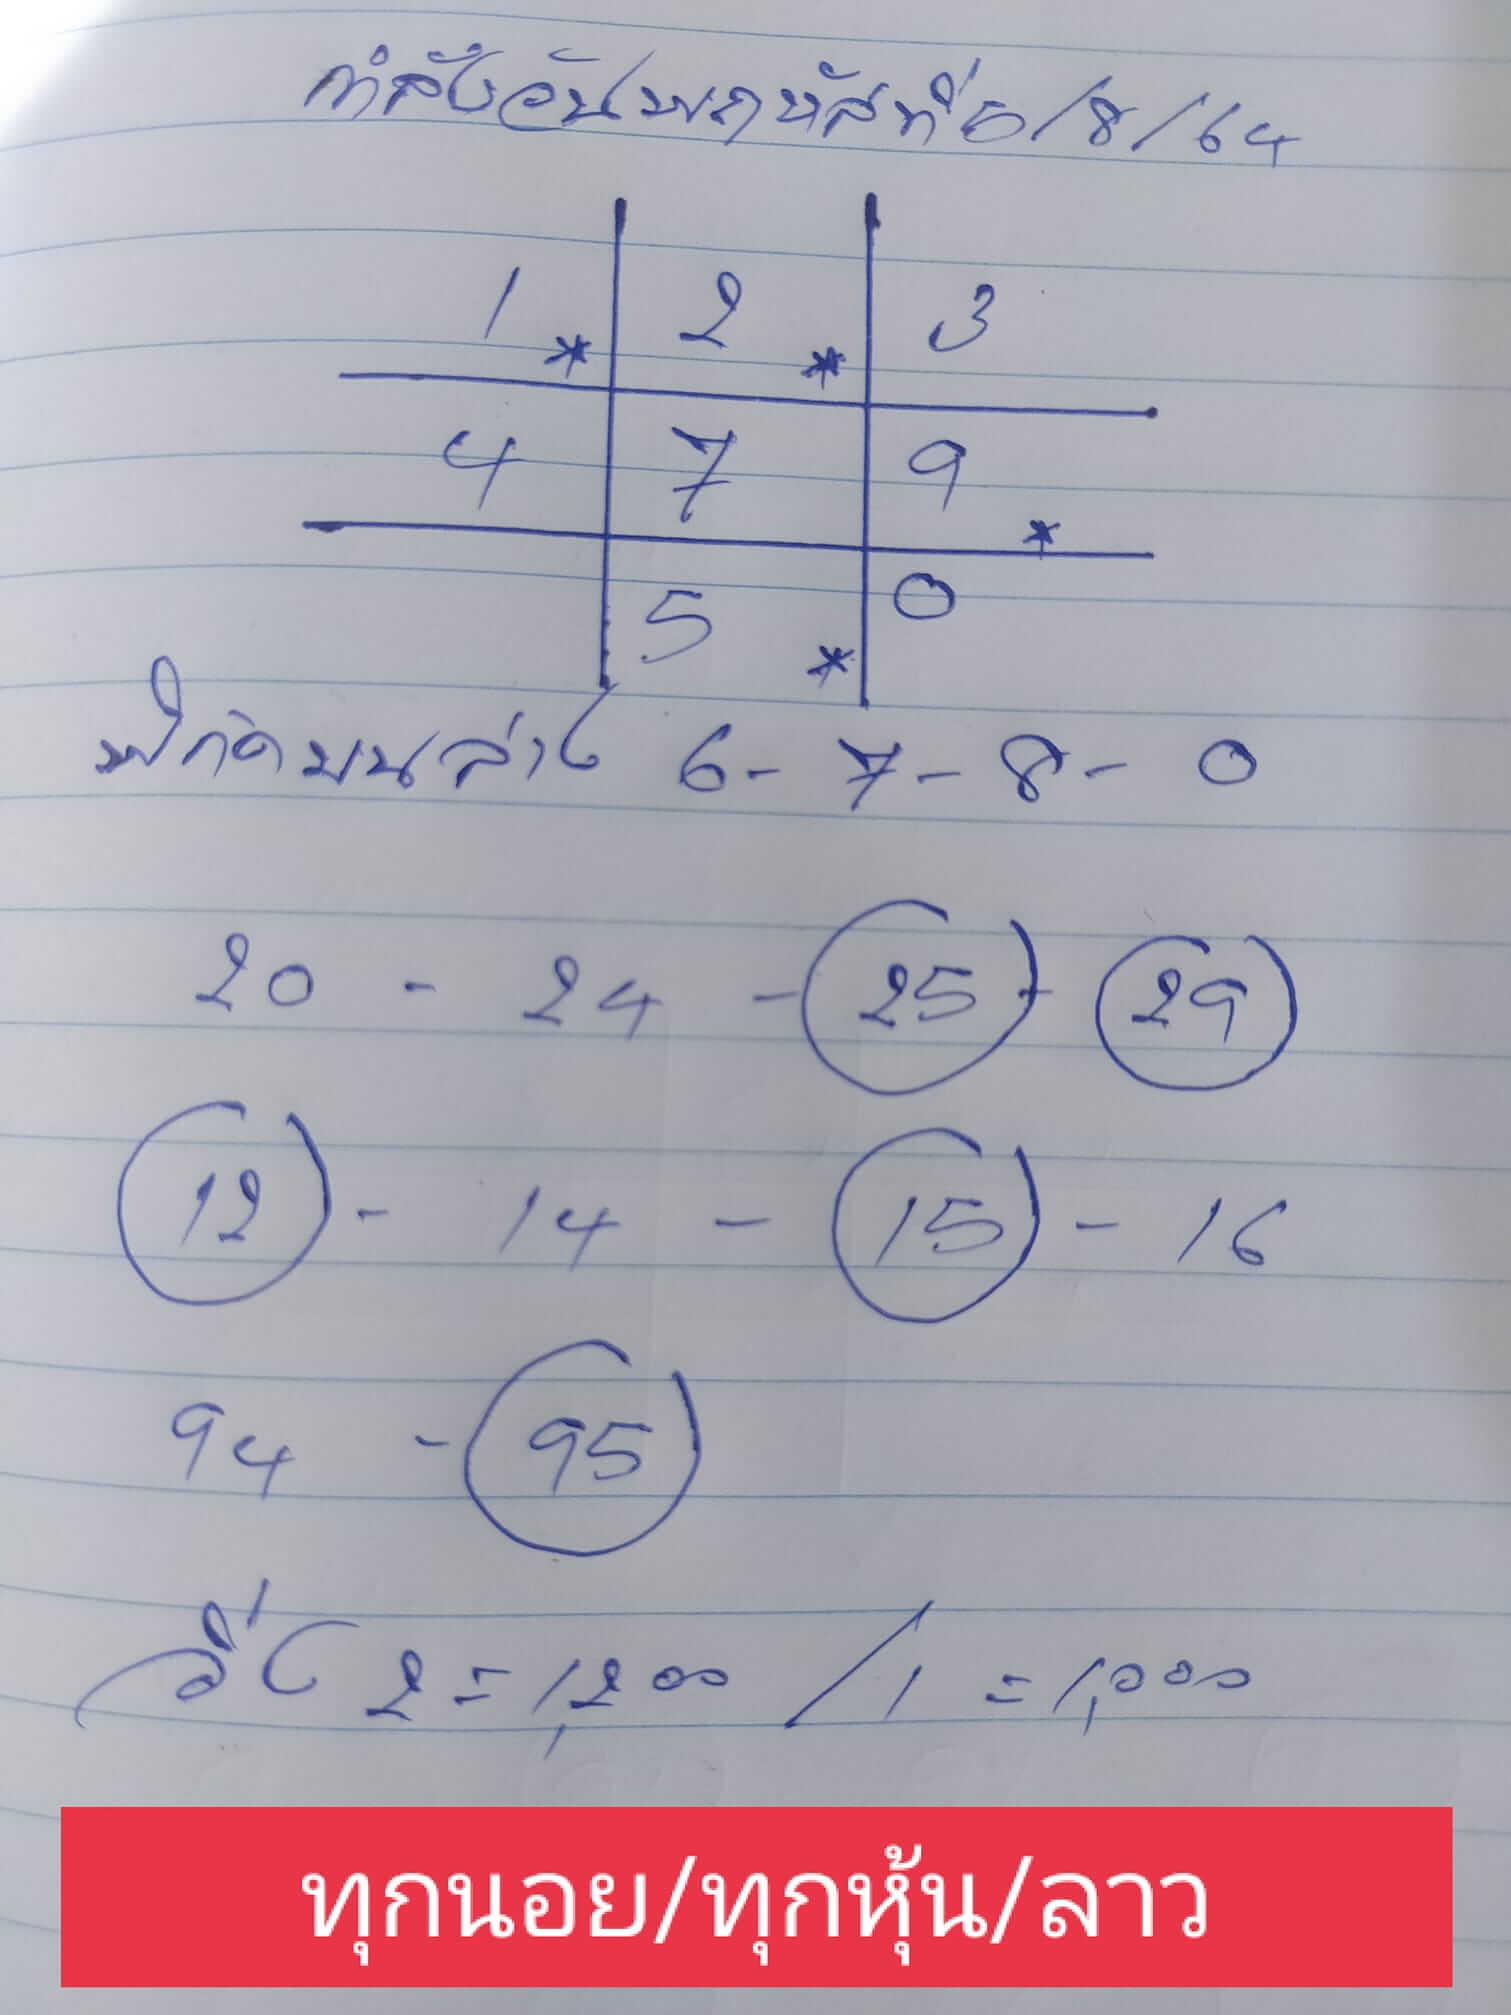 กำลังวันพฤหัสที่ 5/8/64
1 * 2 * 3
4 7 9 *
5 * 0
พิกัดบนล่าง 6 - 7 - 8 - 0
20 - 24 - 25 - 29
12 - 14 - 15 - 16
94 - 95
วิ่ง 2 = 1,200 / 1 = 1,000
ทุกนอย/ทุกหุ้น/ลาว